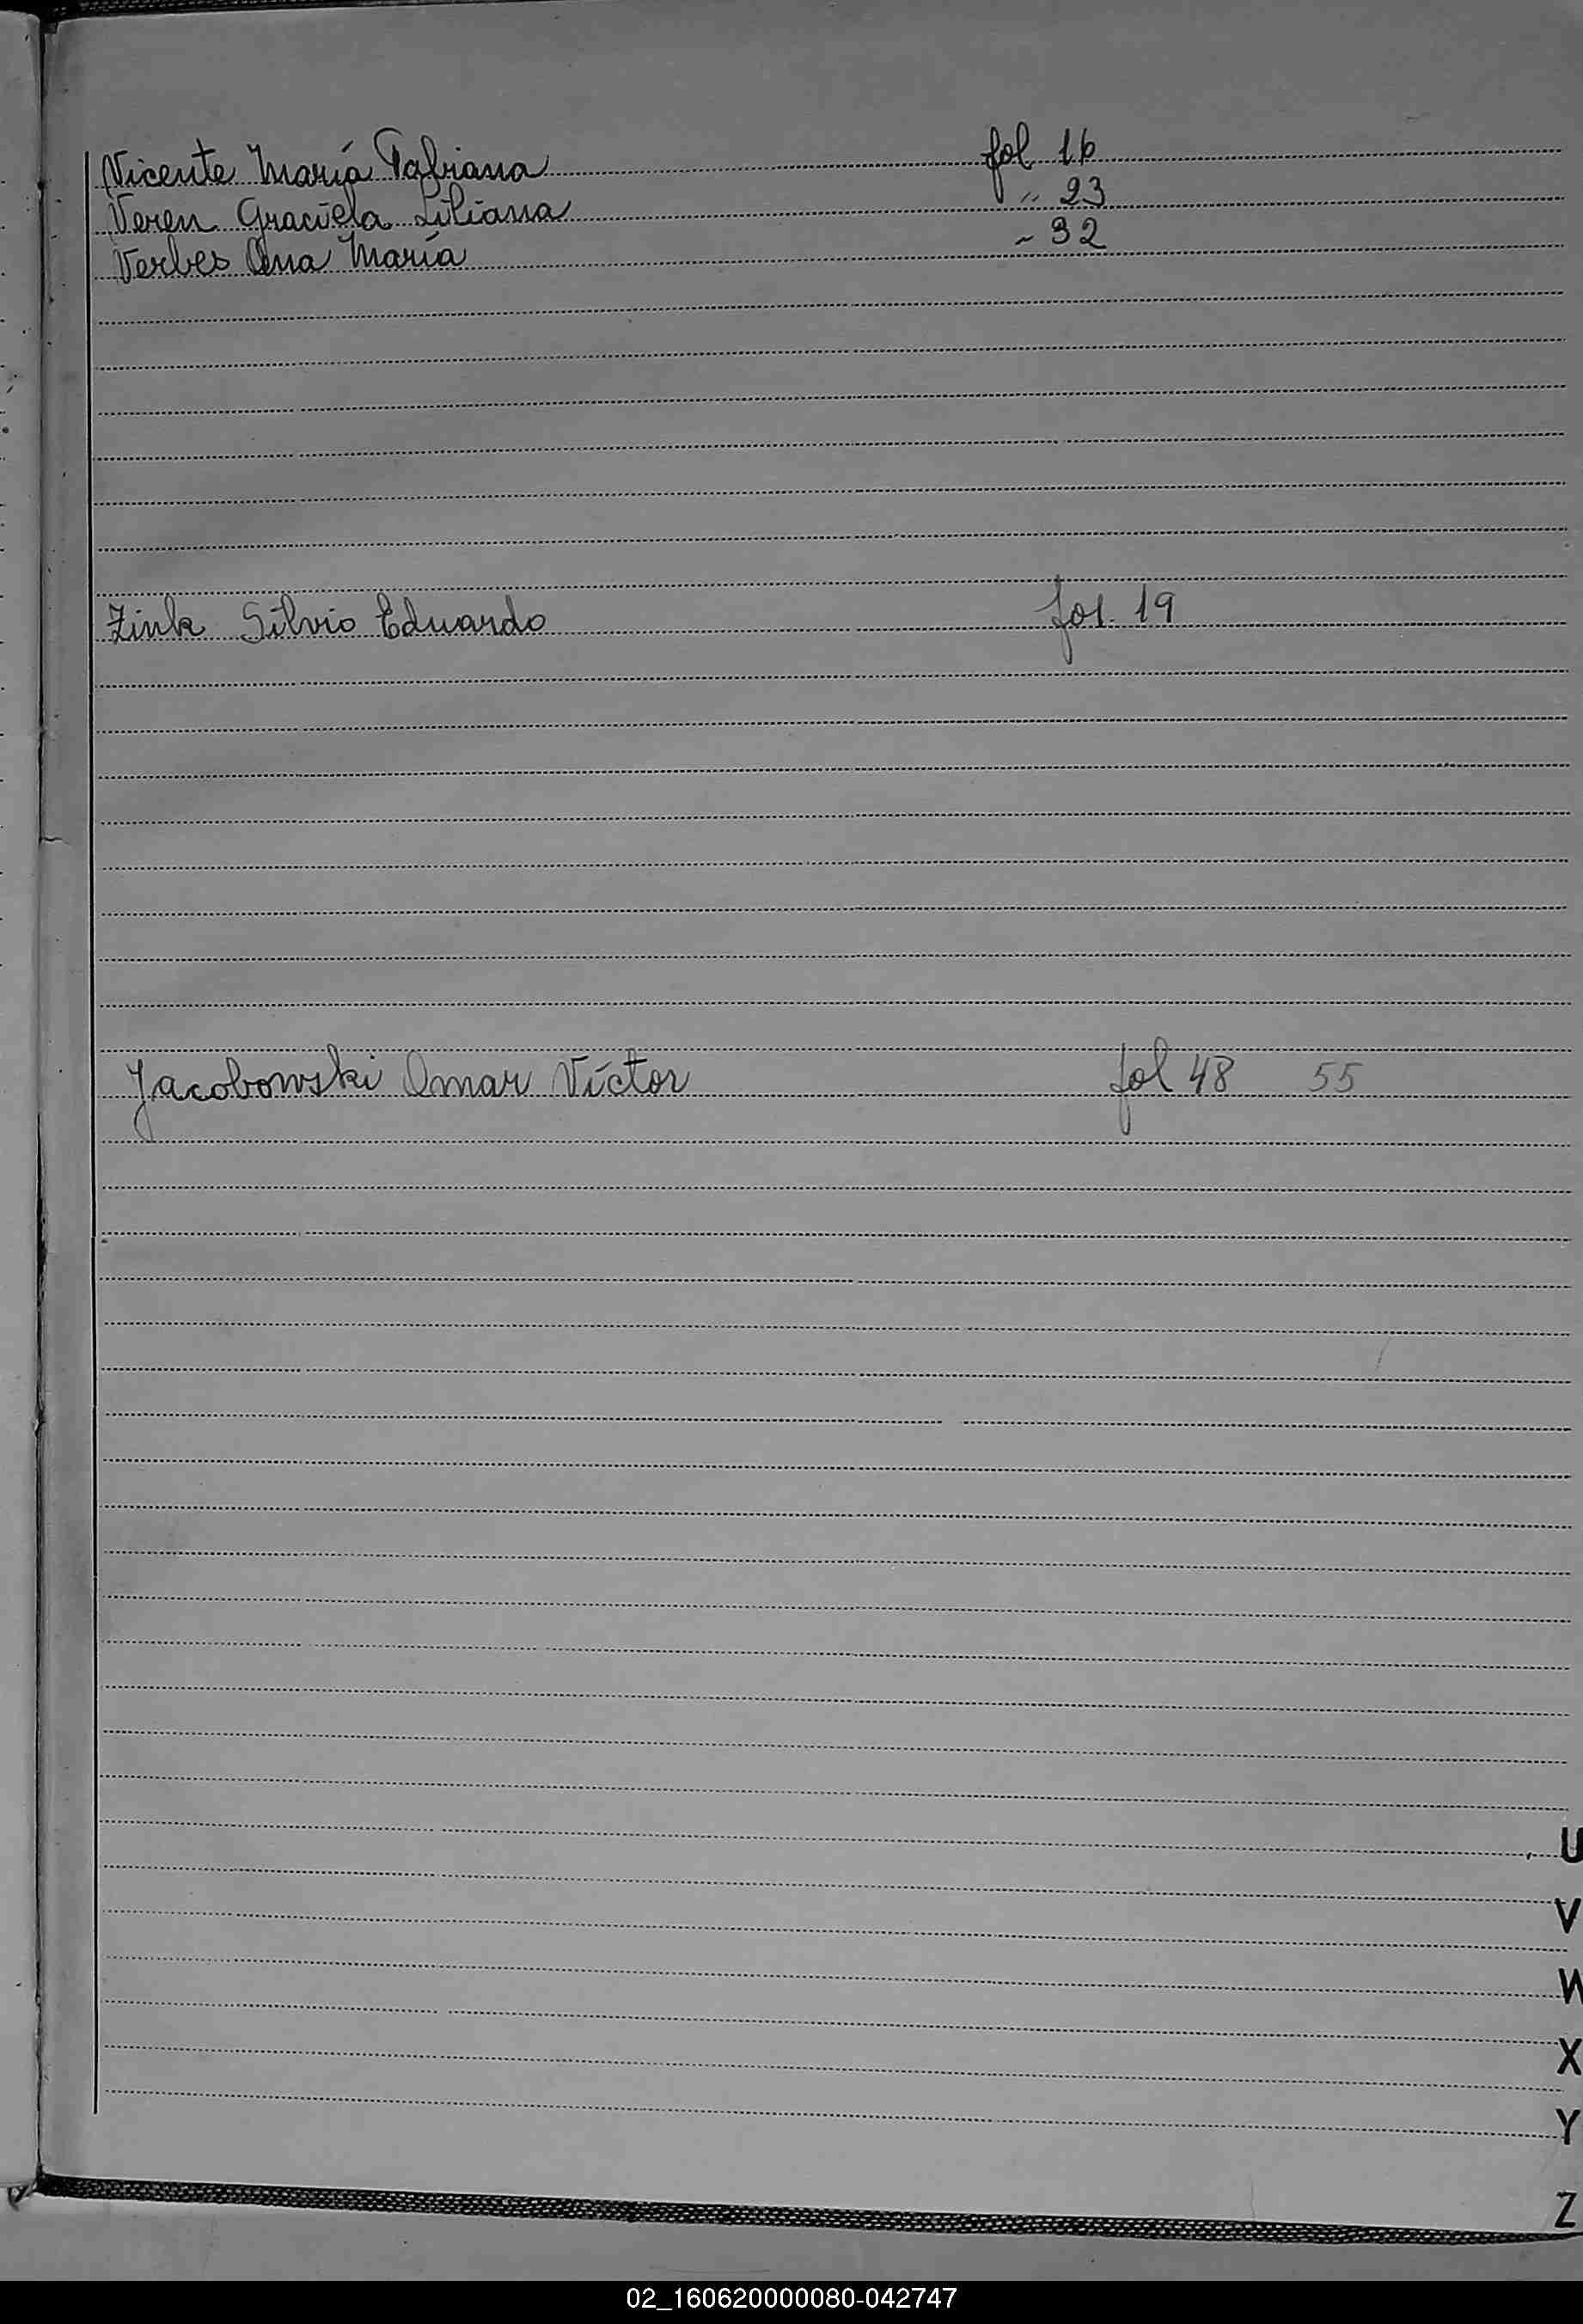 Vicente María Fabiana fol 16
Veren Graciela Liliana " 23
Verbes Ana María " 32
Zink Silvio Eduardo fol. 19
Jacobowski Omar Víctor fol 48 55
U
V
W
X
Y
Z
02_160620000080-042747